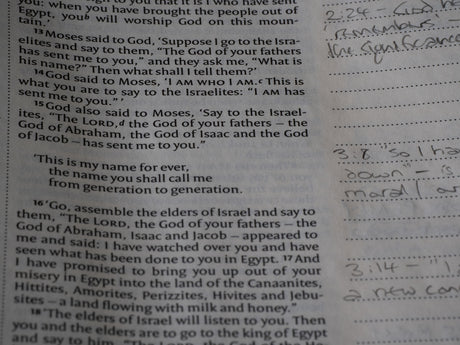 you: when you have brought the people out of
Egypt, youᵇ will worship God on this moun-
tain.'
13 Moses said to God, 'Suppose I go to the Isra-
elites and say to them, "The God of your fathers
has sent me to you," and they ask me, "What is
his name?" Then what shall I tell them?'
14 God said to Moses, 'I AM WHO I AM.ᶜ This is
what you are to say to the Israelites: "I AM has
sent me to you."'
15 God also said to Moses, 'Say to the Israel-
ites, "The LORD,ᵈ the God of your fathers – the
God of Abraham, the God of Isaac and the God
of Jacob – has sent me to you."
'This is my name for ever,
the name you shall call me
from generation to generation.
16 'Go, assemble the elders of Israel and say to
them, "The LORD, the God of your fathers – the
God of Abraham, Isaac and Jacob – appeared to
me and said: I have watched over you and have
seen what has been done to you in Egypt. 17 And
I have promised to bring you up out of your
misery in Egypt into the land of the Canaanites,
Hittites, Amorites, Perizzites, Hivites and Jebu-
sites – a land flowing with milk and honey."
18 'The elders of Israel will listen to you. Then
you and the elders are to go to the king of Egypt
and say to him, "The LORD, the God of the
2:24 - God
remembers
the significance
3:8 "so I ha
down" - is
moral/
3:14 - "I
a new